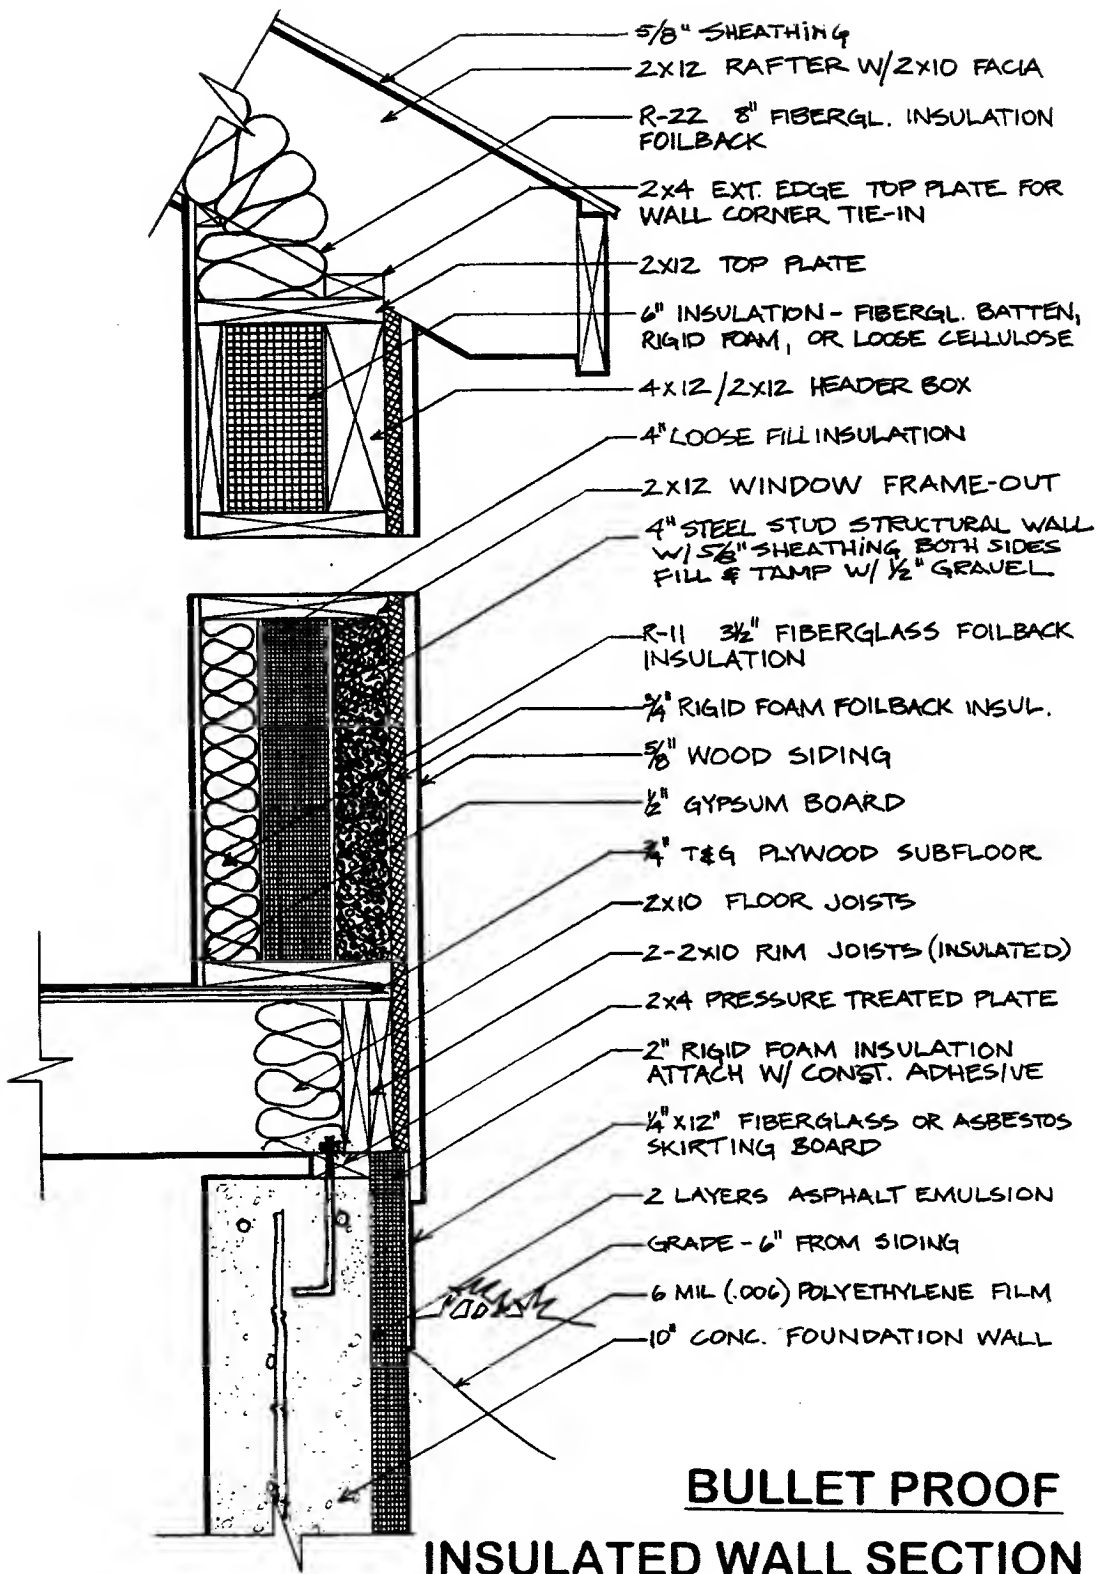 5/8" SHEATHING
2X12 RAFTER W/2X10 FACIA
R-22 8" FIBERGL. INSULATION
FOILBACK
2X4 EXT. EDGE TOP PLATE FOR
WALL CORNER TIE-IN
2X12 TOP PLATE
6" INSULATION - FIBERGL. BATTEN,
RIGID FOAM, OR LOOSE CELLULOSE
4X12/2X12 HEADER BOX
4" LOOSE FILL INSULATION
2X12 WINDOW FRAME-OUT
4" STEEL STUD STRUCTURAL WALL
W/ 5/8" SHEATHING BOTH SIDES
FILL & TAMP W/ 1/2" GRAVEL
R-11 3½" FIBERGLASS FOILBACK
INSULATION
3/4" RIGID FOAM FOILBACK INSUL.
5/8" WOOD SIDING
1/2" GYPSUM BOARD
3/4" T&G PLYWOOD SUBFLOOR
2X10 FLOOR JOISTS
2-2X10 RIM JOISTS (INSULATED)
2X4 PRESSURE TREATED PLATE
2" RIGID FOAM INSULATION
ATTACH W/ CONST. ADHESIVE
1/4" X12" FIBERGLASS OR ASBESTOS
SKIRTING BOARD
2 LAYERS ASPHALT EMULSION
GRADE - 6" FROM SIDING
6 MIL (.006) POLYETHYLENE FILM
10" CONC. FOUNDATION WALL
BULLET PROOF
INSULATED WALL SECTION